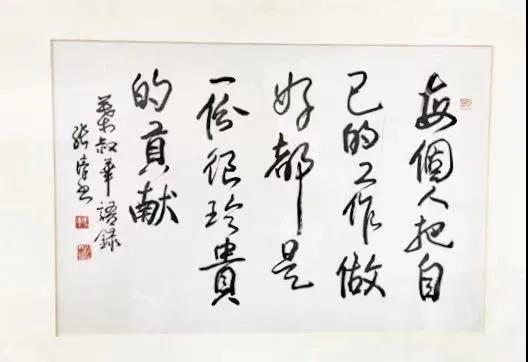 每個人把自
己的工作做
好都是
一份很珍貴
的貢献
葉叔華語録
張